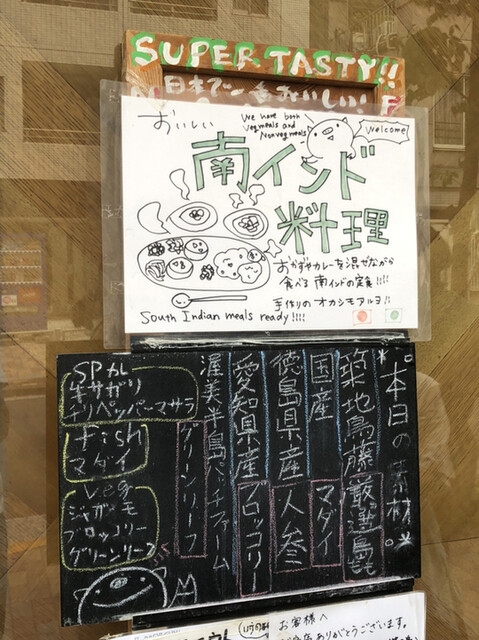 SUPER TASTY!!
日本で一番おいしい!
おいしい
We have both
veg meals and
Nonveg meals
Welcome
南インド
料理
おかずやカレーを混ぜながら
食べる 南インドの定食!!!!
手作りのオカシモアルヨ!!
South Indian meals ready!!!!
*本日の素材*
築地鳥藤 厳選鳥もも
国産 マダイ
徳島県産 人参
愛知県産 ブロッコリー
渥美半島 ファーム
グリーンリーフ
SPカレ
牛サガリ
チリペッパーマサラ
fish
マダイ
veg
ジャガイモ
ブロッコリー
グリーンリーフ
お客様へ
ありがとうございます。